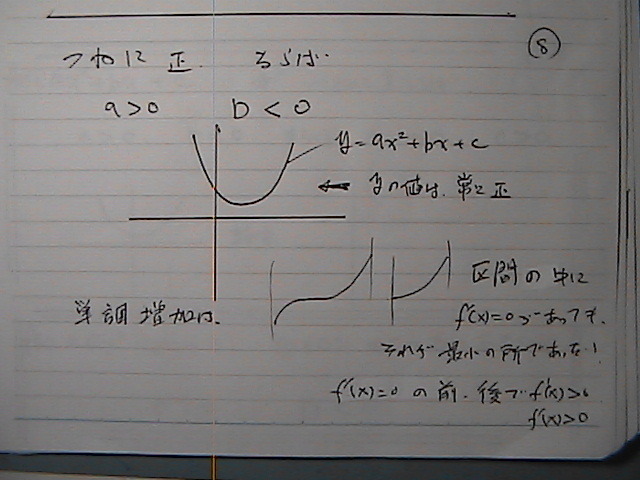 ⑧
つねに 正. ならば
a>0 b<0
y=ax²+bx+c
← yの値は、常に正
区間の中に
単調増加は、
f'(x)=0があっても、
それが最小の所であない!
f'(x)=0 の前、後でf'(x)>0
f'(x)>0